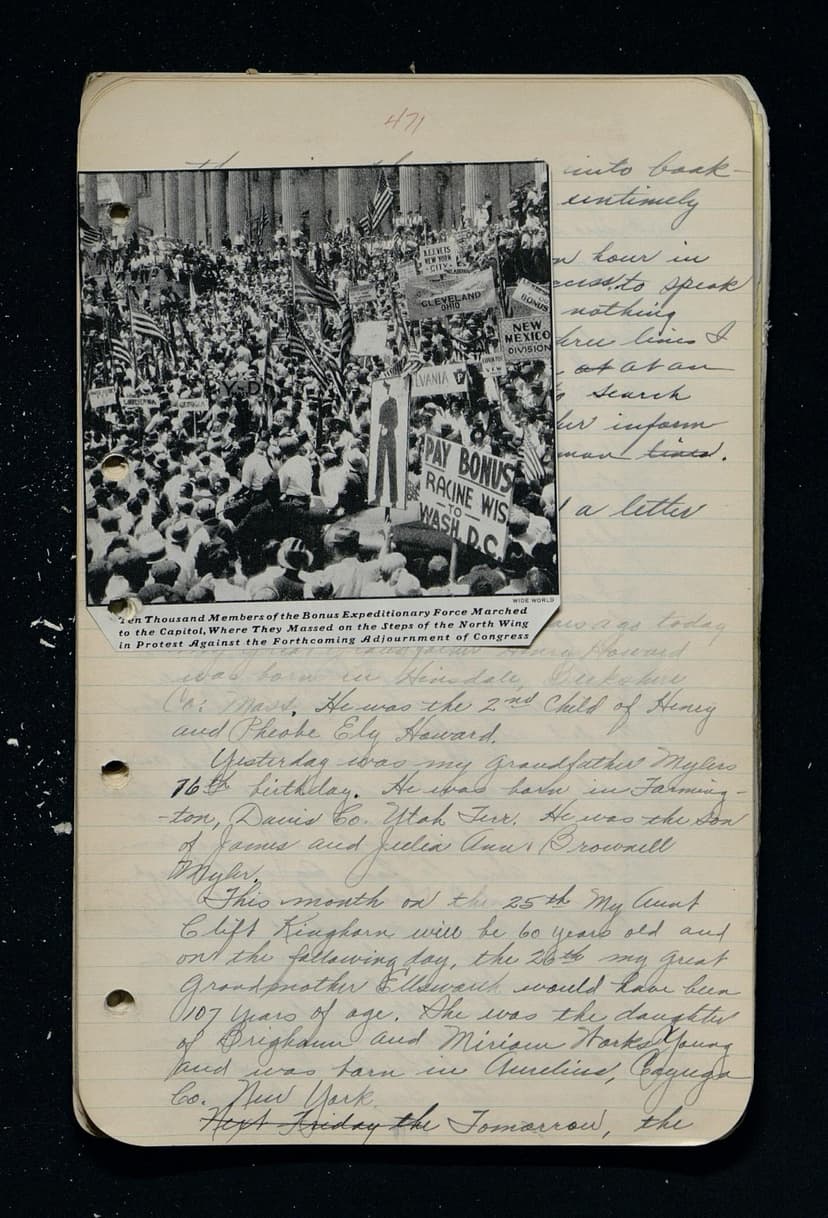 471
into book-
untimely
hour in
to speak
nothing
lines I
at at an
search
inform
lines.
a letter
ago today
Henry Howard
was born in Hinsdale, Berkshire
Co: Mass. He was the 2nd Child of Henry
and Pheobe Ely Howard.
Yesterday was my grandfather Mylers
76th birthday. He was born in Farming-
-ton, Davis Co. Utah Terr. He was the son
of James and Julia Ann Brownell
Myler.
This month on the 25th My Aunt
Clift Kinghorn will be 60 years old and
on the following day, the 26th my great
Grandmother Ellsworth would have been
107 years of age. She was the daughter
of Brigham and Miriam Works Young
and was born in Aurelius, Cayuga
Co. New York.
Next Friday the Tomorrow, the
NEW YORK
CITY
CLEVELAND
OHIO
BONUS
NEW
MEXICO
DIVISION
LVANIA
PAY BONUS
RACINE WIS
TO
WASH. D.C.
WIDE WORLD
Ten Thousand Members of the Bonus Expeditionary Force Marched
to the Capitol, Where They Massed on the Steps of the North Wing
in Protest Against the Forthcoming Adjournment of Congress